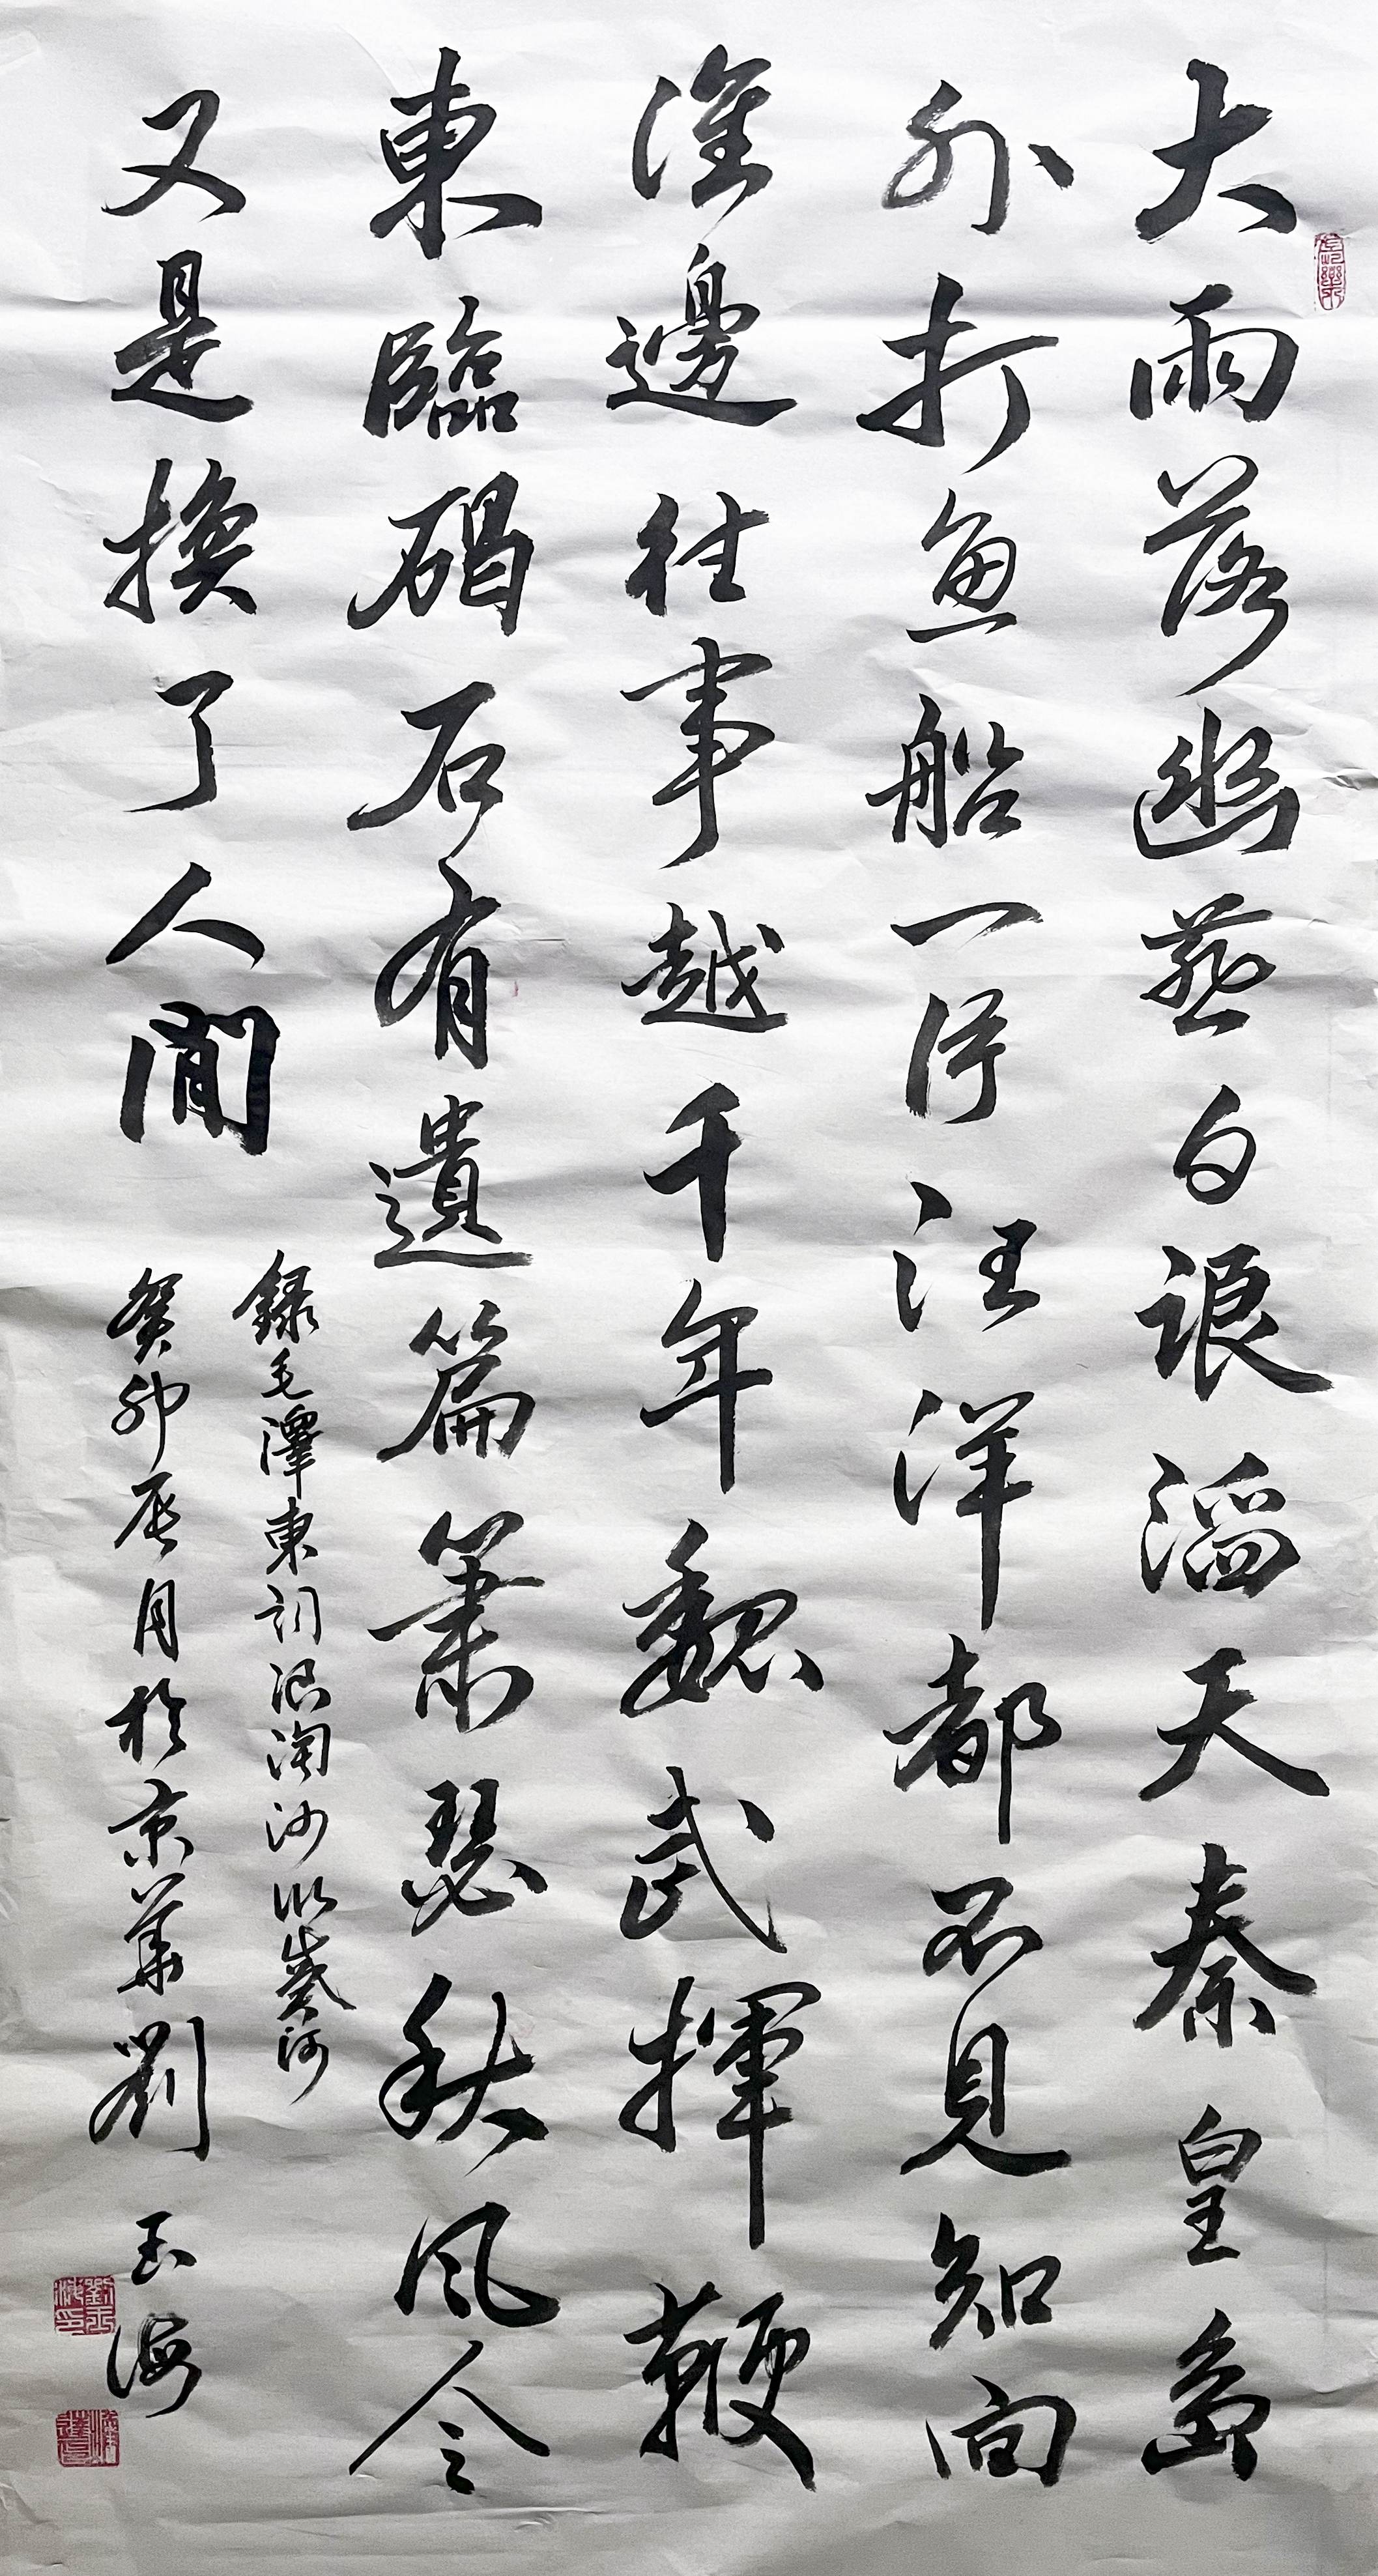 大雨落幽燕白浪滔天秦皇島
外打魚船一片汪洋都不見知向
誰邊往事越千年魏武揮鞭
東臨碣石有遺篇蕭瑟秋風今
又是換了人間
錄毛澤東詞浪淘沙北戴河
癸卯辰月於京華劉玉海